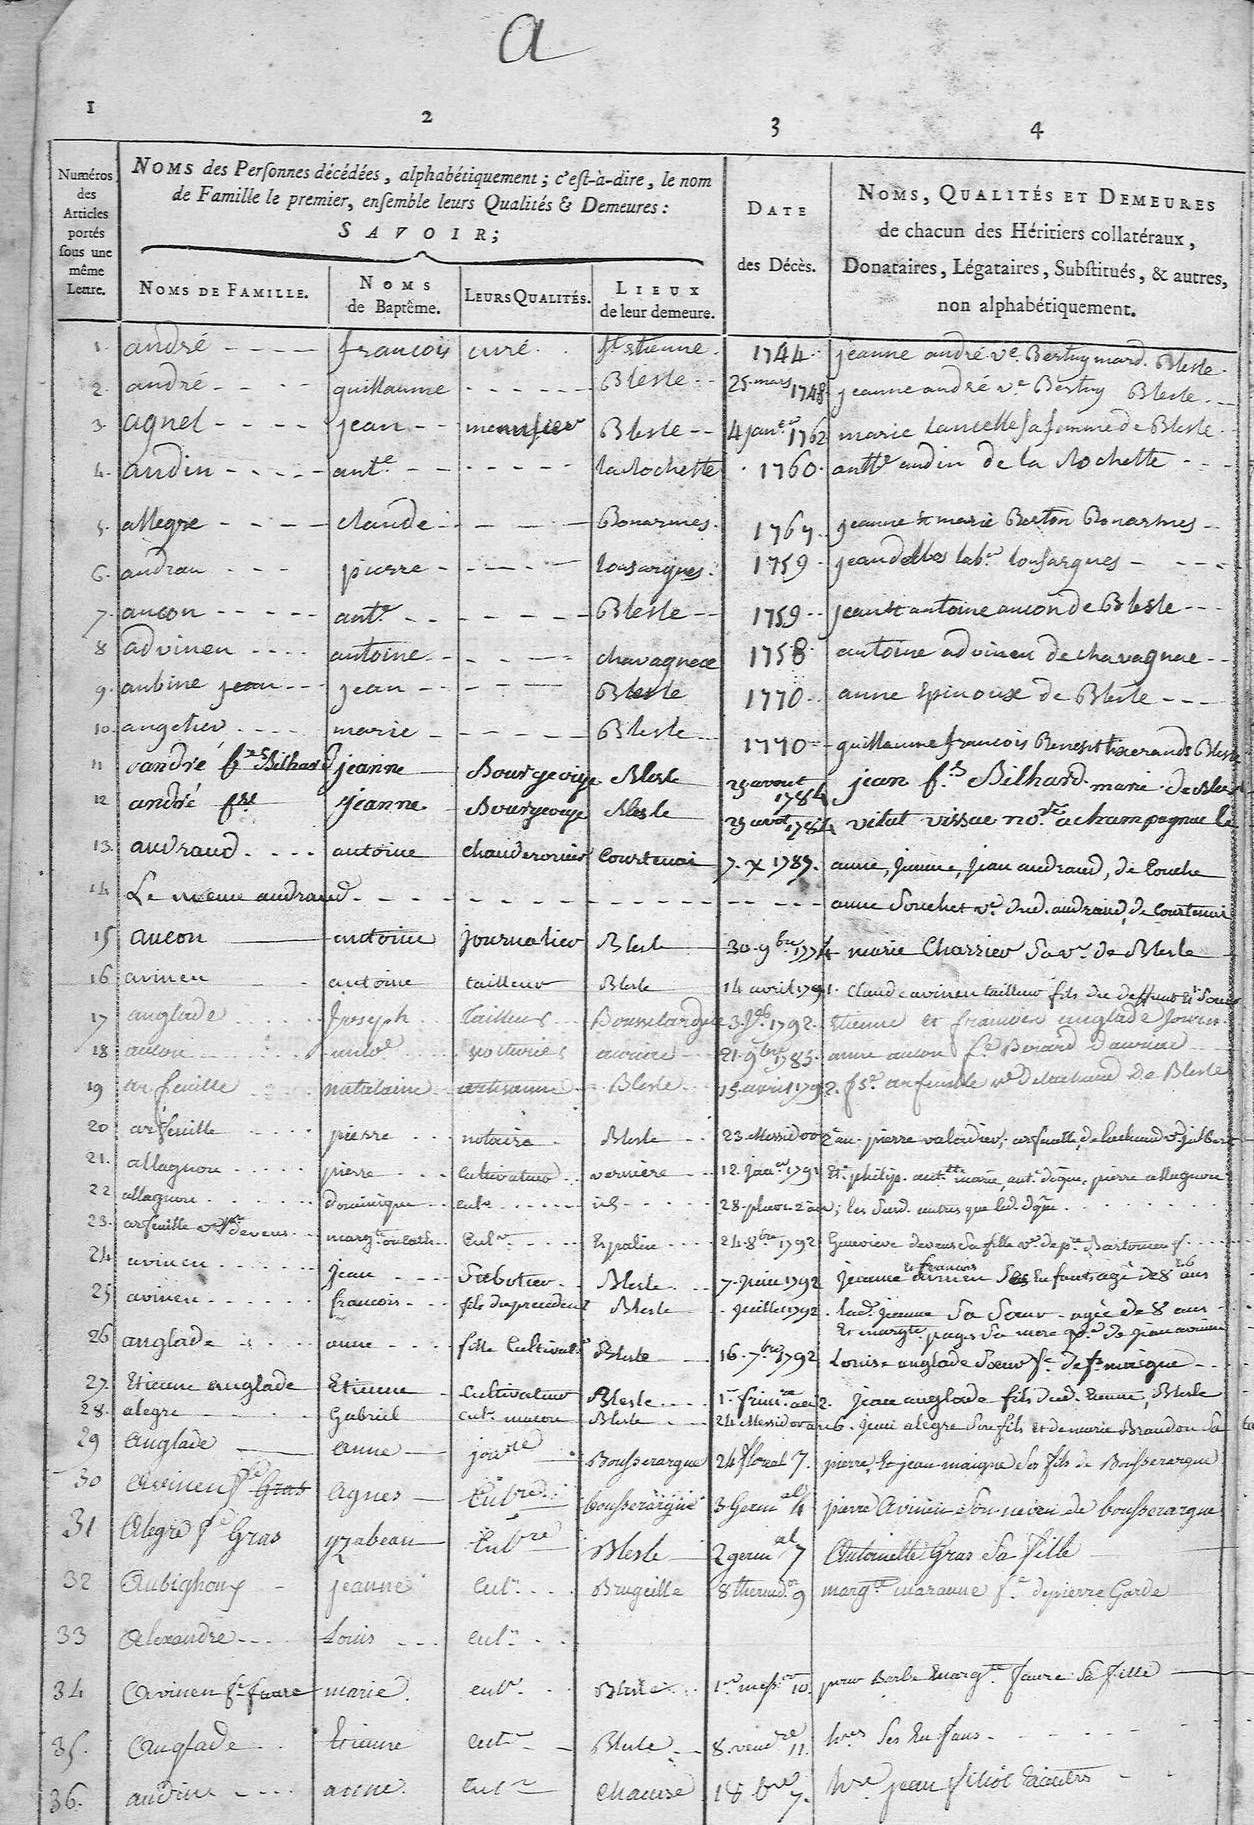 a
1 2 3 4
Numéros des Articles portés sous une même Lettre.
NOMS des Personnes décédées, alphabétiquement; c'est-à-dire, le nom
de Famille le premier, ensemble leurs Qualités & Demeures:
SAVOIR;
NOMS DE FAMILLE.
NOMS de Baptême.
LEURS QUALITÉS.
LIEUX de leur demeure.
DATE
des Décès.
NOMS, QUALITÉS ET DEMEURES
de chacun des Héritiers collatéraux,
Donataires, Légataires, Substitués, & autres,
non alphabétiquement.
1. andré francois curé st etienne 1744 jeanne andré ve. Bertuy mard. Blesle
2. andré guillaume Blesle 25 mars 1748 jeanne andré ve Bertuy Blesle
3. agnel jean menusier Blesle 4 janer 1762 marie Lancelle sa femme de Blesle
4. audin ante la Rochette 1760 antte audin de la Rochette
5. allegre claude Bonarmes 1767 jeanne et marie Berton Bonarmes
6. andrau pierre lousargues 1759 jean delbos labr lousargues
7. aucon ante Blesle 1759 jean et antoine aucon de Blesle
8 advineu antoine chavagnac 1758 antoine advineu de chavagnac
9. aubine jean jean Blesle 1770 anne Epinoux de Blesle
10. angelier marie Blesle 1770 guillaume francois Benesit tixerands Blesle
11 andré fe Bilhard jeanne Bourgeoise Blesle 29 avout 1784 jean fs Bilhard marie de Blesle
12 andré jeanne Bourgeoise Blesle 29 avout 1784 vital vissac nore a champagnac le
13. audraud antoine chauderonier Courtenai 7. x 1787. anne, jeanne, jean audraud, de
14 Le meme audraud anne Souchet ve dud. audraud, de Courtenai
15 aucon antoine journalier Blesle 30. 9bre 1774 marie Charrier Sa ve. de Blesle
16 avineu antoine tailleur Blesle 14 avril 1791. Claude avineu tailleur fils du deffunt
17 anglade Joseph tailleur Bousselargue 3. 1792. Etienne et francois anglade
18 aucon antoe voiturier auriac 21. 9bre 1785. anne aucon fe Berard d'auriac
19 arfeuille artisanne Blesle 15 avril 1792. arfeuille ve de Blesle
20 arfeuille pierre notaire Blesle 23. Messidor 2 an. pierre valadier, arfeuille,
21. allagnon pierre cultivateur verniere 12. janer 1791 philip. marie, ant. pierre allagnon
22 allagnon dominique culr id 28. pluvo 2 an; les Surd. autres que led.
23. arfeuille ve devens culr Espalin 24. 8bre 1792 Genevieve devens Sa fille ve de pre Bartomeuf
24 avineu jean Sabotier Blesle 7. juin 1792 jeanne et francois avineu Ses Enfants agé de 8 ans
25 avineu francois fils du precedent Blesle juillet 1792. lad. jeanne Sa Sœur agée de 8 ans
Et margte pages Sa mere ve de jean avineu
26 anglade anne fille Cultivat. Blesle 16. 7bre 1792 Louise anglade Sœur fe de maigne
27. Etienne anglade Etienne Cultivateur Blesle 1er frim. an 2. jean anglade fils dud. Etienne, Blesle
28. alegre Gabriel cult. macon Blesle 24 Messidor an 6. jean alegre Son fils et de marie Brandon Sa
29 Anglade anne Bousserargue 24 floreal 7. pierre, Et jean maigne Ses fils de Bousserargue
30 Avineu fe Gras Agnes Culre bousserargue 3 Germal 4 pierre Avineu Son neveu de bousserargue
31 Alegre fe Gras yzabeau Culre Blesle 2 germal 7 Antoinette Gras Sa fille
32 Aubighoux jeanne culr Brugeille 8 thermidor 9 margte maranne fe de pierre Garde
33 Alexandre Louis culr
34 Avineu fe faure marie culr Blesle 1er messor 10. pour Barbe Et margte faure Sa fille
35. Anglade Etienne cultr Blesle 8. vendre 11. hres Ses Enfans
36. audin anne culre Chausse 18 bre 7. hre jean filiol